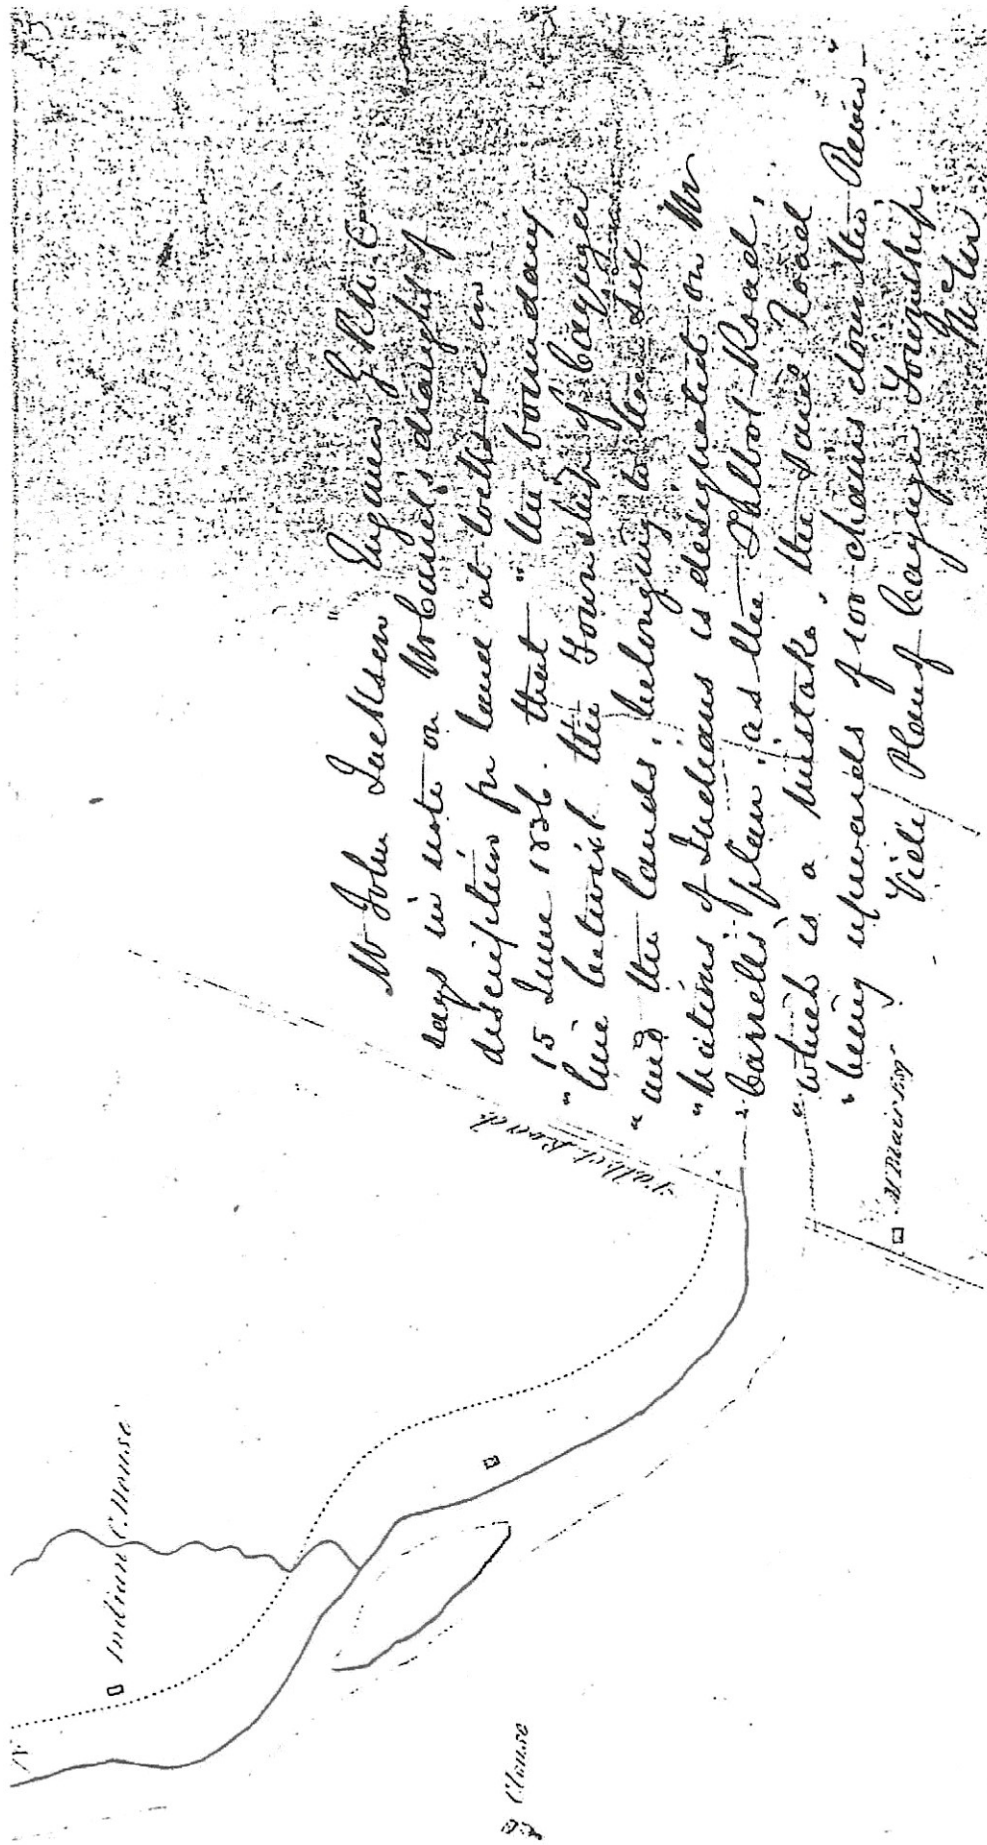 Mr John Jackson Engineer G R N Co
says in note on McCaul's draught of
description for land at locks &c in
15 June 1836. that "the boundary
"line betwixt the Township of Cayuga
"and the lands, belonging to the Six
"Nations of Indians is designated on Mr
"Carrells' plan, as the Talbot Road,
"which is a mistake, the said Road
"being upwards of 100 chains down the River"
Vide Plan of Cayuga Township
Talbot Road
Indian C. House
House